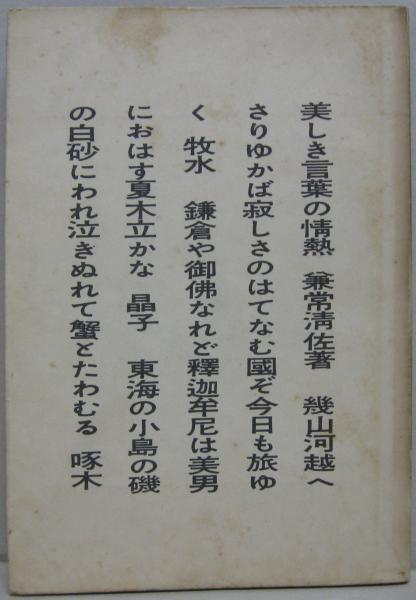 美しき言葉の情熱　兼常淸佐著　幾山河越へ
さりゆかば寂しさのはてなむ國ぞ今日も旅ゆ
く　牧水　鎌倉や御佛なれど釋迦牟尼は美男
におはす夏木立かな　晶子　東海の小島の磯
の白砂にわれ泣きぬれて蟹とたわむる　啄木